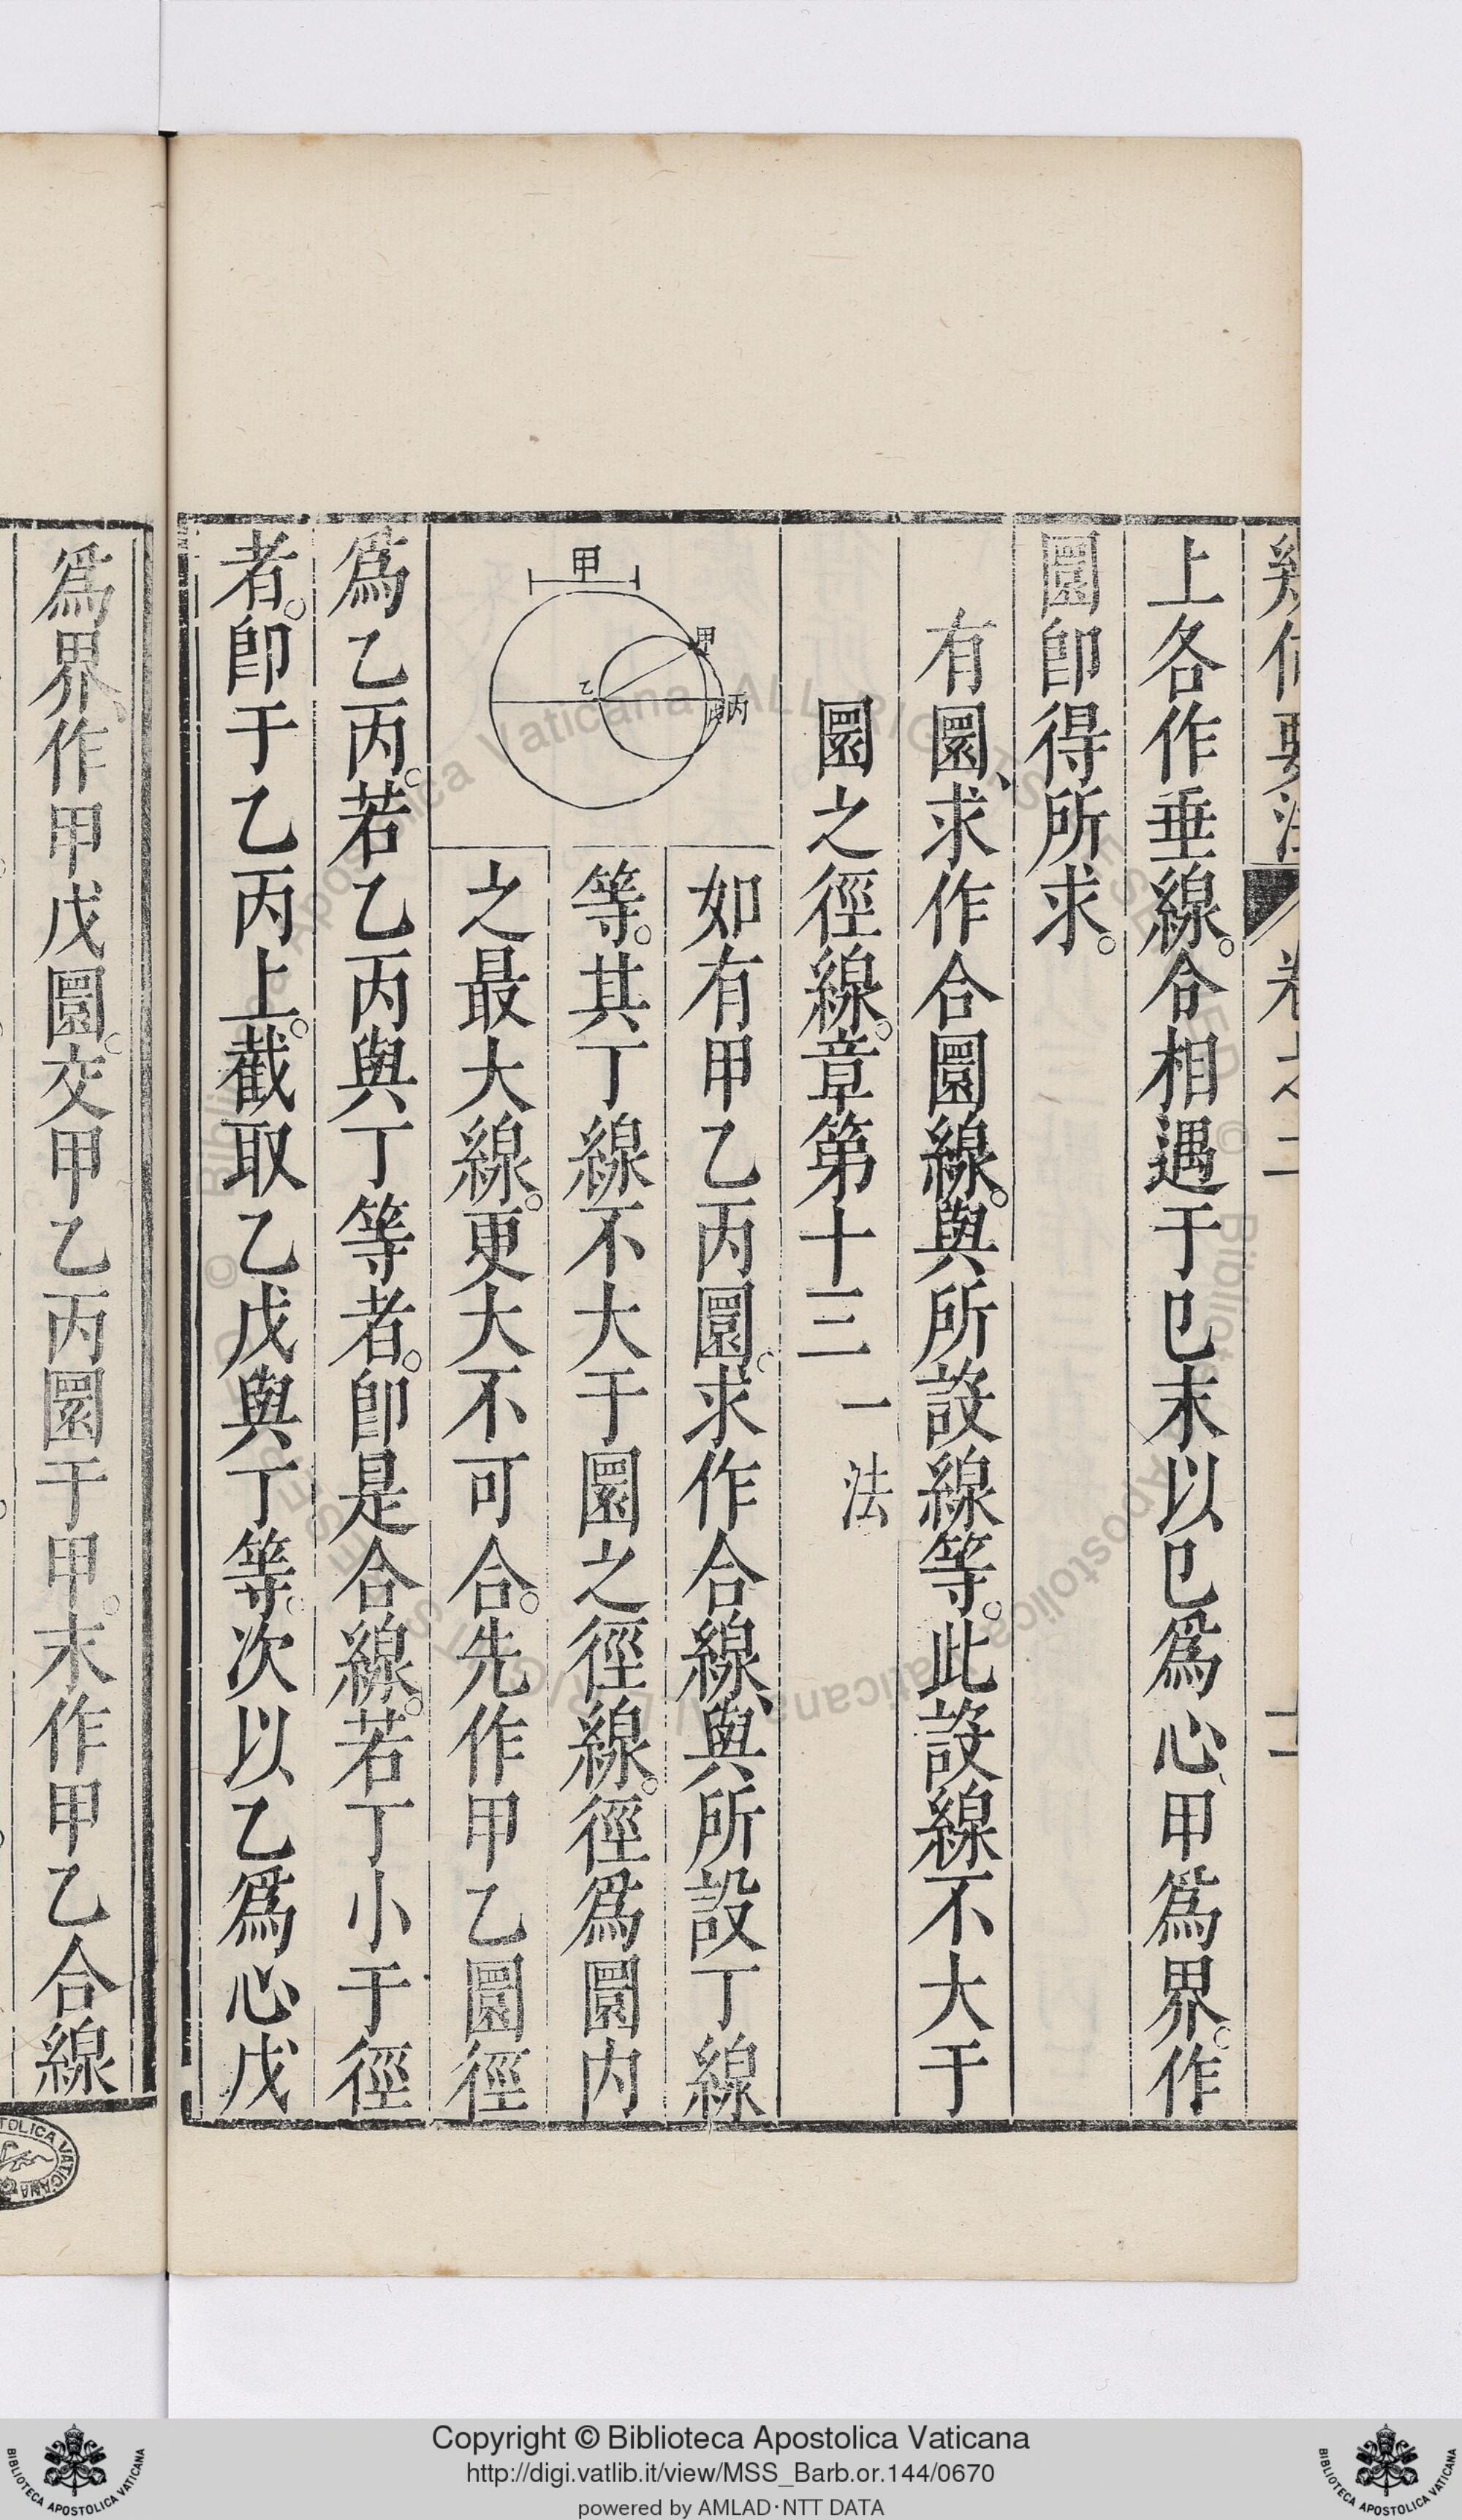 幾何要法 卷之二 十一
上各作垂線。合相遇于巳末以巳爲心、甲爲界。作
圜卽得所求。
有圜、求作合圜線。與所設線等。此設線不大于
圜之徑線。章第十三 一法
如有甲乙丙圜。求作合線、與所設丁線
等。其丁線不大于圜之徑線。徑爲圜内
之最大線。更大不可合。先作甲乙圜徑
甲
甲
乙
戊丙
爲乙丙。若乙丙與丁等者。卽是合線。若丁小于徑
者。卽于乙丙上。截取乙戊與丁等。次以乙爲心戊
爲界、作甲戊圜。交甲乙丙圜于甲。末作甲乙合線
Copyright © Biblioteca Apostolica Vaticana
http://digi.vatlib.it/view/MSS_Barb.or.144/0670
powered by AMLAD·NTT DATA
BIBLIOTECA APOSTOLICA VATICANA
BIBLIOTECA APOSTOLICA VATICANA